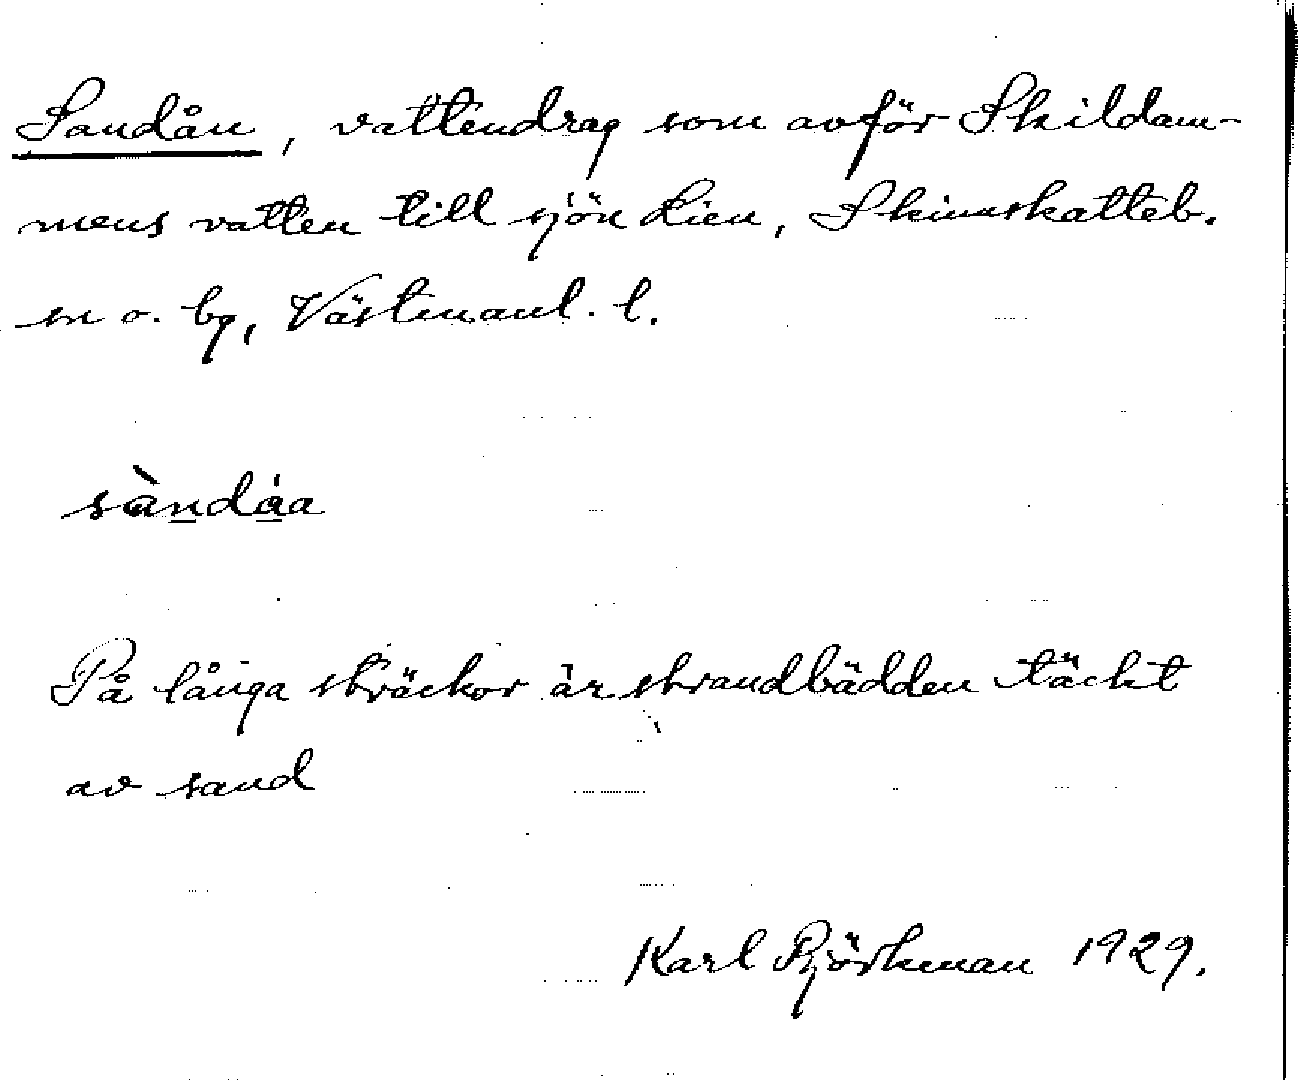 Sandån, vattendrag som avför Skildam-
mens vatten till sjön Lien, Skinnskatteb.
sn o. bg, Västmanl. l.
sàndåa
På långa sträckor är strandbädden täckt
av sand
Karl Björkman 1929.